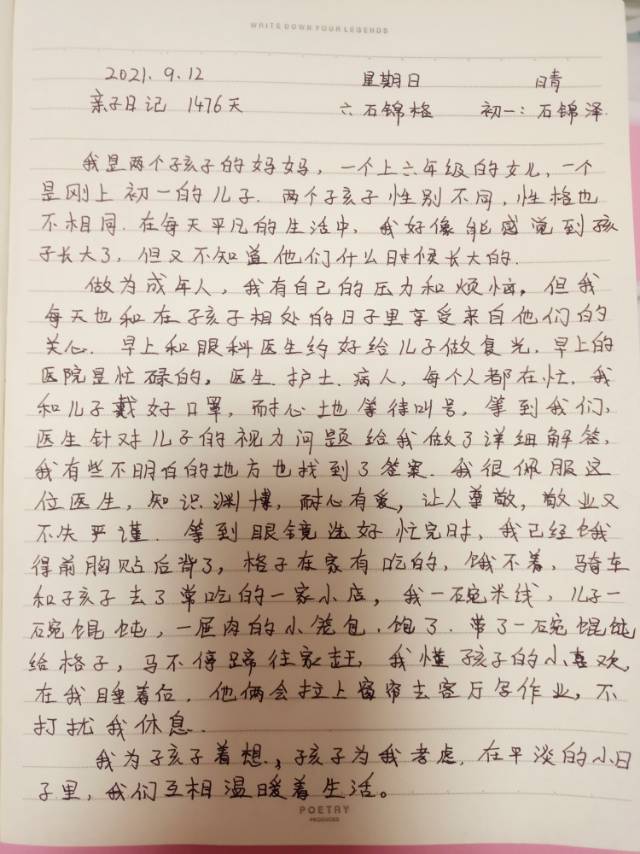 WRITE DOWN YOUR LEGENDS
2021.9.12 星期日 晴
亲子日记 1476天 六石锦格 初一:石锦泽
我是两个孩子的妈妈,一个上六年级的女儿,一个
是刚上初一的儿子.两个孩子性别不同,性格也
不相同.在每天平凡的生活中,我好像能感觉到孩
子长大了,但又不知道他们什么时候长大的.
做为成年人,我有自己的压力和烦恼,但我
每天也和在孩子相处的日子里享受来自他们的
关心.早上和眼科医生约好给儿子做复光.早上的
医院是忙碌的,医生.护士.病人,每个人都在忙.我
和儿子戴好口罩,耐心地等待叫号,等到我们,
医生针对儿子的视力问题给我做了详细解答,
我有些不明白的地方也找到了答案.我很佩服这
位医生,知识渊博,耐心有爱,让人尊敬,敬业又
不失严谨.等到眼镜选好忙完时,我已经饿
得前胸贴后背了,格子在家有吃的,饿不着,骑车
和孩子去了常吃的一家小店,我一碗米线,儿子一
碗馄饨,一屉肉的小笼包.饱了.带了一碗馄饨
给格子,马不停蹄往家赶,我懂孩子的小喜欢,
在我睡着后,他俩会拉上窗帘去客厅写作业,不
打扰我休息.
我为孩子着想,孩子为我考虑,在平淡的小日
子里,我们互相温暖着生活。
POETRY